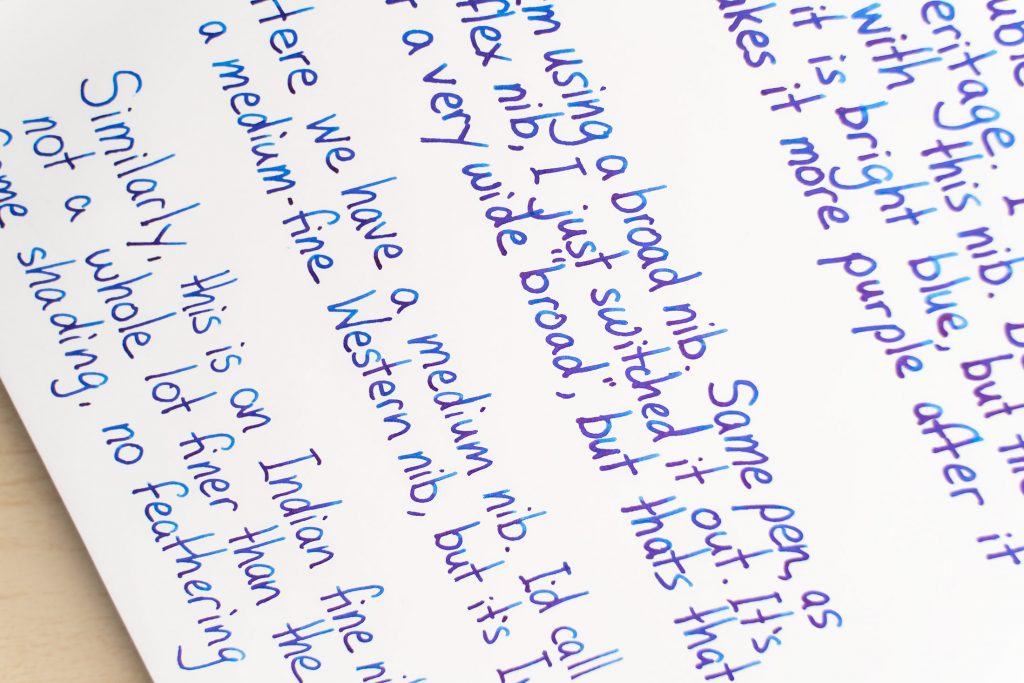 eritage. I
with this nib.
it is bright blue, but the
akes it more purple after it
I'm using a broad nib. Same pen, as
flex nib, I just switched it out. It's
a very wide "broad," but thats that
Here we have a medium nib. I'd call
a medium-fine Western nib, but it's
Similarly, this is an Indian fine ni
not a whole lot finer than the
Some shading, no feathering